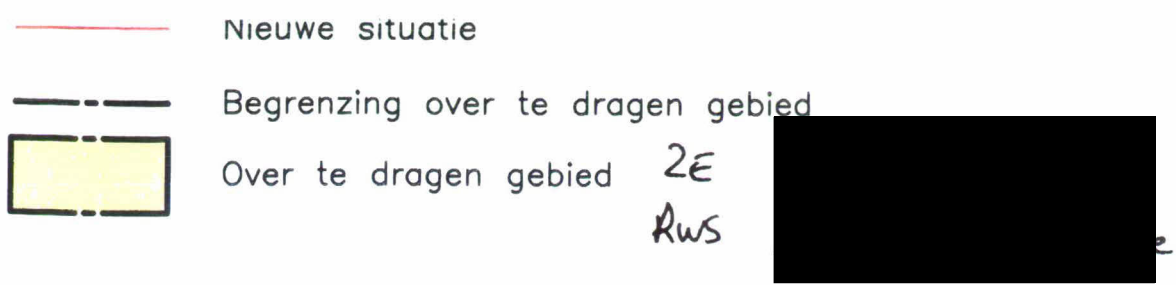 Nieuwe situatie
Begrenzing over te dragen gebied
Over te dragen gebied 2E
RWS